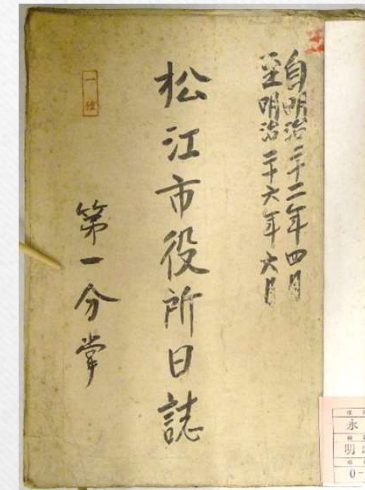 自明治二十二年四月
至明治二十六年六月
松江市役所日誌
第一分掌
一種
永
明
0-